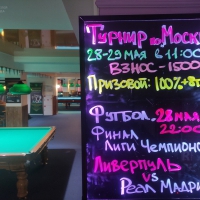 Турнир по Москв
28-29 мая в 11:00
Взнос - 1500
Призовой: 100%+8
Футбол, 28 мая
22:00
Финал
Лиги Чемпионо
Ливерпуль
vs
Реал Мадри